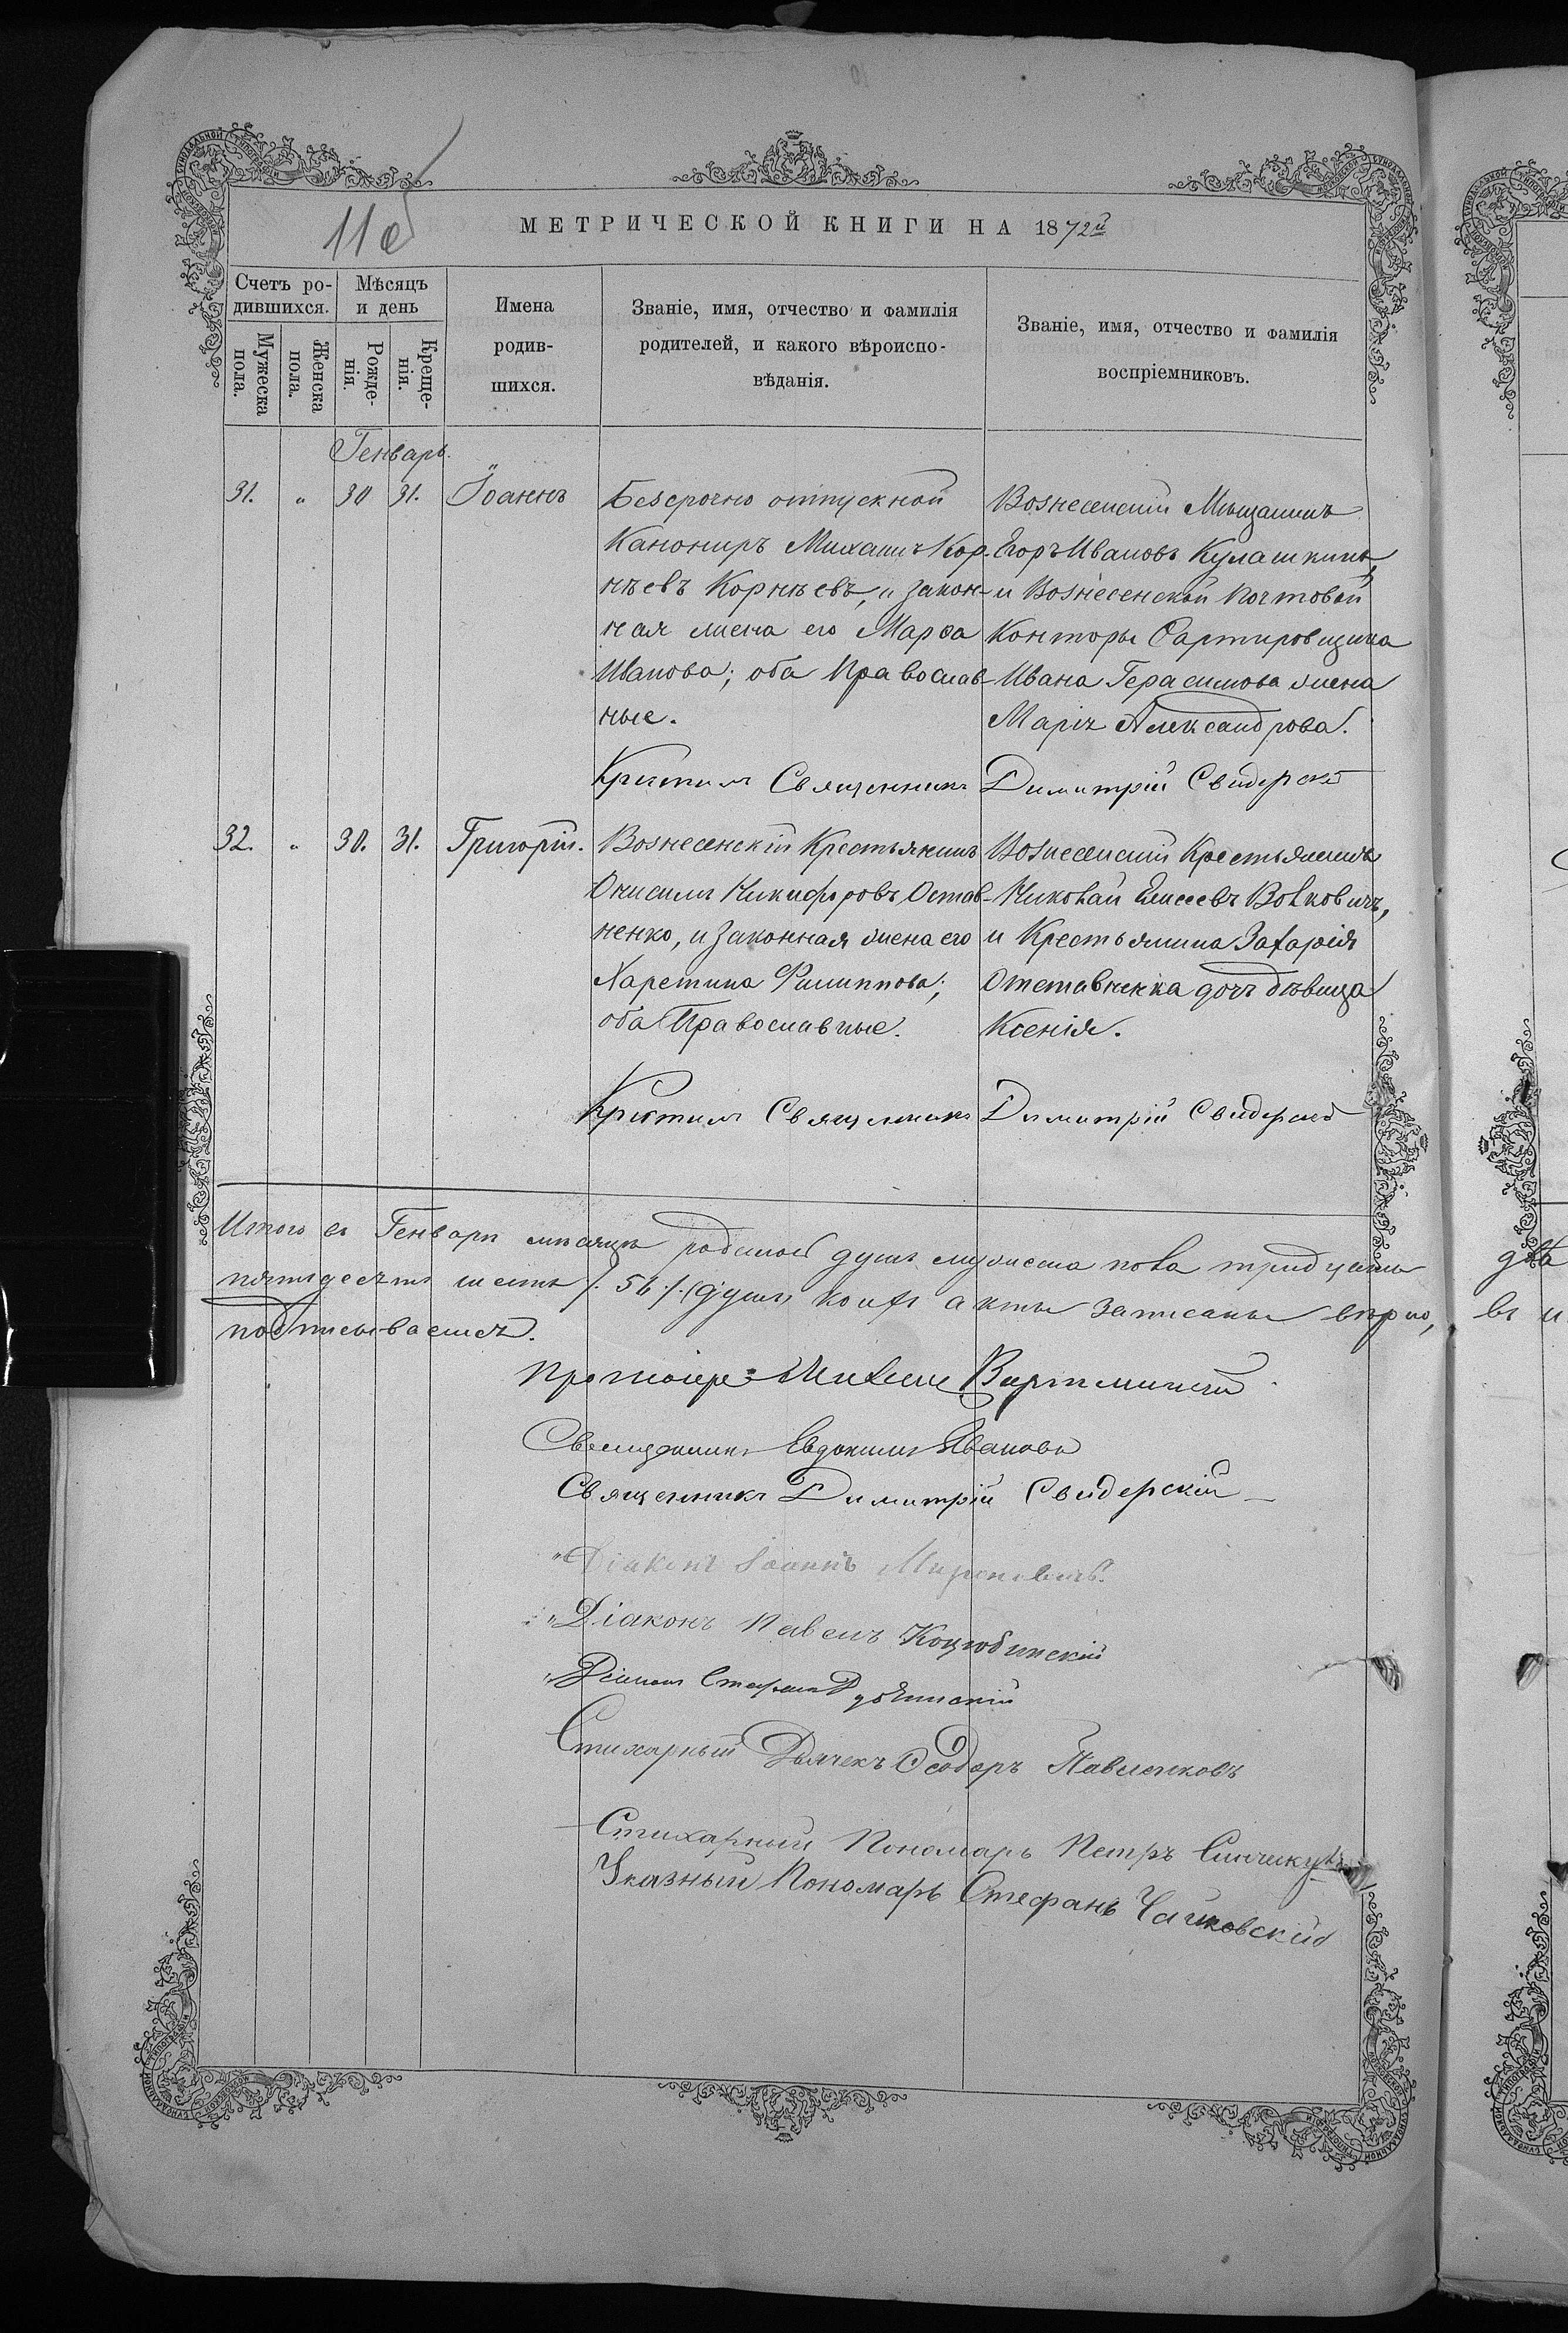 11об
МЕТРИЧЕСКОЙ КНИГИ НА 1872й
Счетъ ро-
дившихся.
Мѣсяцъ
и день
Мужеска
пола.
Женска
пола.
Рожде-
нія.
Креще-
нія.
Имена
родив-
шихся.
Званіе, имя, отчество и фамилія
родителей, и какого вѣроиспо-
вѣданія.
Званіе, имя, отчество и фамилія
воспріемниковъ.
Генварь.
31. " 30 31. Іоаннъ
Безсрочно отпускной
Канониръ Михаилъ Кор-
нѣевъ Корнѣевъ, и закон-
ная жена его Марѳа
Иванова; оба Православ-
ные.
Вознесенскій Мѣщанинъ
Егоръ Ивановъ Кулашкинъ,
и Вознесенской Почтовой
Конторы Сартировщика
Ивана Герасимова жена
Марія Александрова.
Крестилъ Священникъ Димитрій Свидерскій
32. " 30. 31. Григорій.
Вознесенскій Крестьянинъ
Онисимъ Никифоровъ Остав-
ненко, и законная жена его
Харетина Филиппова;
оба Православные.
Вознесенскій Крестьянинъ
Николай Елисеевъ Волковичъ,
и Крестьянина Захарія
Отставненка дочь дѣвица
Ксенія.
Крестилъ Священникъ Димитрій Свидерскій
Итого въ Генварѣ мѣсяцѣ родилось душъ мужеска пола тридцать
пятьдесятъ шесть /. 56 /. душъ коихъ акты записаны вѣрно,
подписываемся.
Протоіерей
Священникъ Евдокимъ Ивановъ
Священникъ Димитрій Свидерскій
Діаконъ Іоаннъ Мироновичъ.
Діаконъ Павелъ Коцюбинскій
Діаконъ Стефанъ
Стихарный Дьячекъ Ѳеодоръ Павленковъ
Стихарный Пономарь Петръ
Указный Пономарь Стефанъ Чайковскій
два
въ и